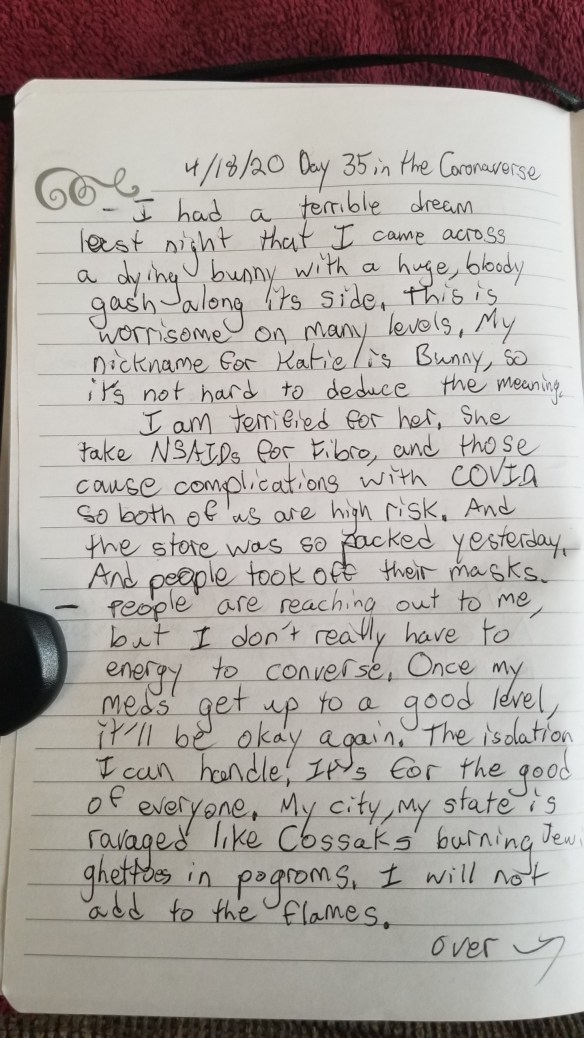 4/18/20 Day 35 in the Coronaverse
- I had a terrible dream
last night that I came across
a dying bunny with a huge, bloody
gash along its side. This is
worrisome on many levels. My
nickname for Katie is Bunny, so
it's not hard to deduce the meaning.
I am terrified for her. She
take NSAIDs for Fibro, and those
cause complications with COVID
so both of us are high risk. And
the store was so packed yesterday.
And people took off their masks.
- People are reaching out to me,
but I don't really have to
energy to converse. Once my
meds get up to a good level,
it'll be okay again. The isolation
I can handle. It's for the good
of everyone. My city, my state is
ravaged like Cossaks burning Jew
ghettoes in pogroms. I will not
add to the flames.
over